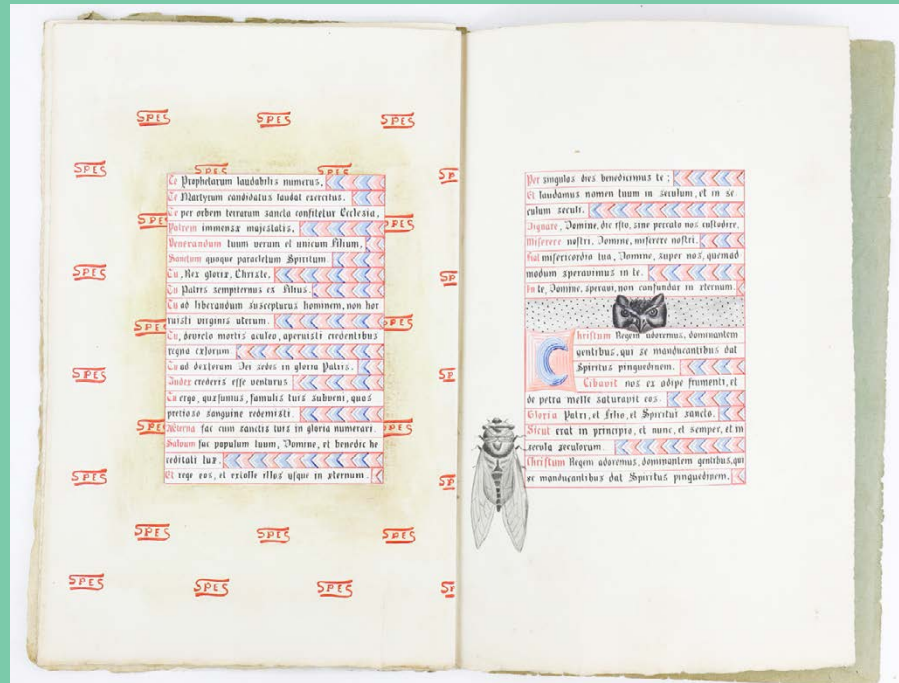 SPES SPES SPES
SPES SPES SPES SP
SPES SPES
SPES SP
SPES SPES
SPES SP
SPES SPES
SPES SP
SPES SPES SPES
SPES SPES SPES SP
Te Prophetarum laudabilis numerus,
Te Martyrum candidatus laudat exercitus.
Te per orbem terrarum sancta confitetur Ecclesia,
Patrem immensæ majestatis,
Venerandum tuum verum et unicum Filium,
Sanctum quoque paracletum Spiritum
Tu, Rex gloriæ, Christe.
Tu Patris sempiternus es Filius.
Tu ad liberandum suscepturus hominem, non hor
ruisti virginis uterum.
Tu, devicto mortis aculeo, aperuisti credentibus
regna cælorum
Tu ad dexteram Dei sedes in gloria Patris.
Iudex crederis esse venturus
Te ergo, quæsumus, famulis tuis subveni, quos
pretioso sanguine redemisti.
Æterna fac cum sanctis tuis in gloria numerari.
Salvum fac populum tuum, Domine, et benedic he
reditati tuæ.
Et rege eos, et extolle illos usque in æternum.
Per singulos dies benedicimus te;
Et laudamus nomen tuum in seculum, et in se
culum seculi.
Dignare, Domine, die isto, sine peccato nos custodire.
Miserere nostri, Domine, miserere nostri.
Fiat misericordia tua, Domine, super nos, quemad
modum speravimus in te.
In te, Domine, speravi, non confundar in æternum.
Christum Regem adoremus, dominantem
gentibus, qui se manducantibus dat
Spiritus pinguedinem.
Cibavit nos ex adipe frumenti, et
de petra melle saturavit eos.
Gloria Patri, et Filio, et Spiritui sancto.
Sicut erat in principio, et nunc, et semper, et in
secula seculorum.
Christum Regem adoremus, dominantem gentibus, qui
se manducantibus dat Spiritus pinguedinem.